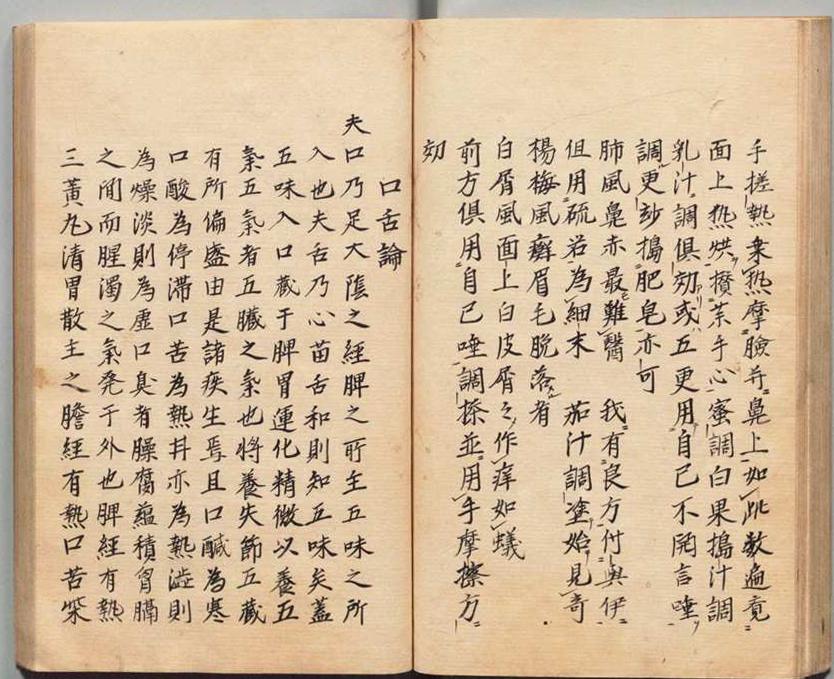 手搓熱来熱摩臉并鼻上如此数遍竟
面上熱烘攅茱手心蜜調白果搗汁調
乳汁調俱効或五更用自己不開言唾
調更妙搗肥皂亦可
肺風鼻赤最難醫　我有良方付與伊
但用硫若為細末　茄汁調塗始見奇
楊梅風癬眉毛脱落者
白屑風面上白皮屑々作痒如蟻
前方俱用自己唾調搽並用手摩擦方
効
口舌論
夫口乃足太陰之經脾之所主五味之所
入也夫舌乃心苗舌和則知五味矣蓋
五味入口藏于脾胃運化精微以養五
氣五氣者五臓之氣也将養失節五蔵
有所偏盛由是諸疾生焉且口鹹為寒
口酸為停滞口苦為熱甘亦為熱澁則
為燥淡則為虚口臭者臊腐蘊積胷膈
之間而腥濁之氣発于外也脾經有熱
三黄九清胃散主之膽經有熱口苦柴